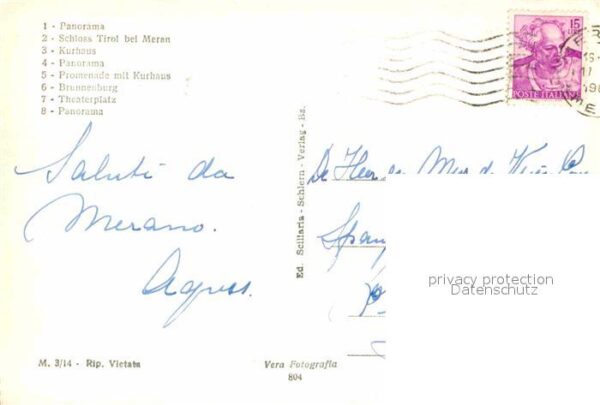 1 - Panorama
2 - Schloss Tirol bei Meran
3 - Kurhaus
4 - Panorama
5 - Promenade mit Kurhaus
6 - Brunnenburg
7 - Theaterplatz
8 - Panorama
15
POSTE ITALIANE
Saluti da
Merano.
Agnes.
Ed. Scillaria - Schlern - Verlag - Bz.
De Heer en Mev. d.
privacy protection
Datenschutz
M. 3/14 - Rip. Vietata
Vera Fotografia
804